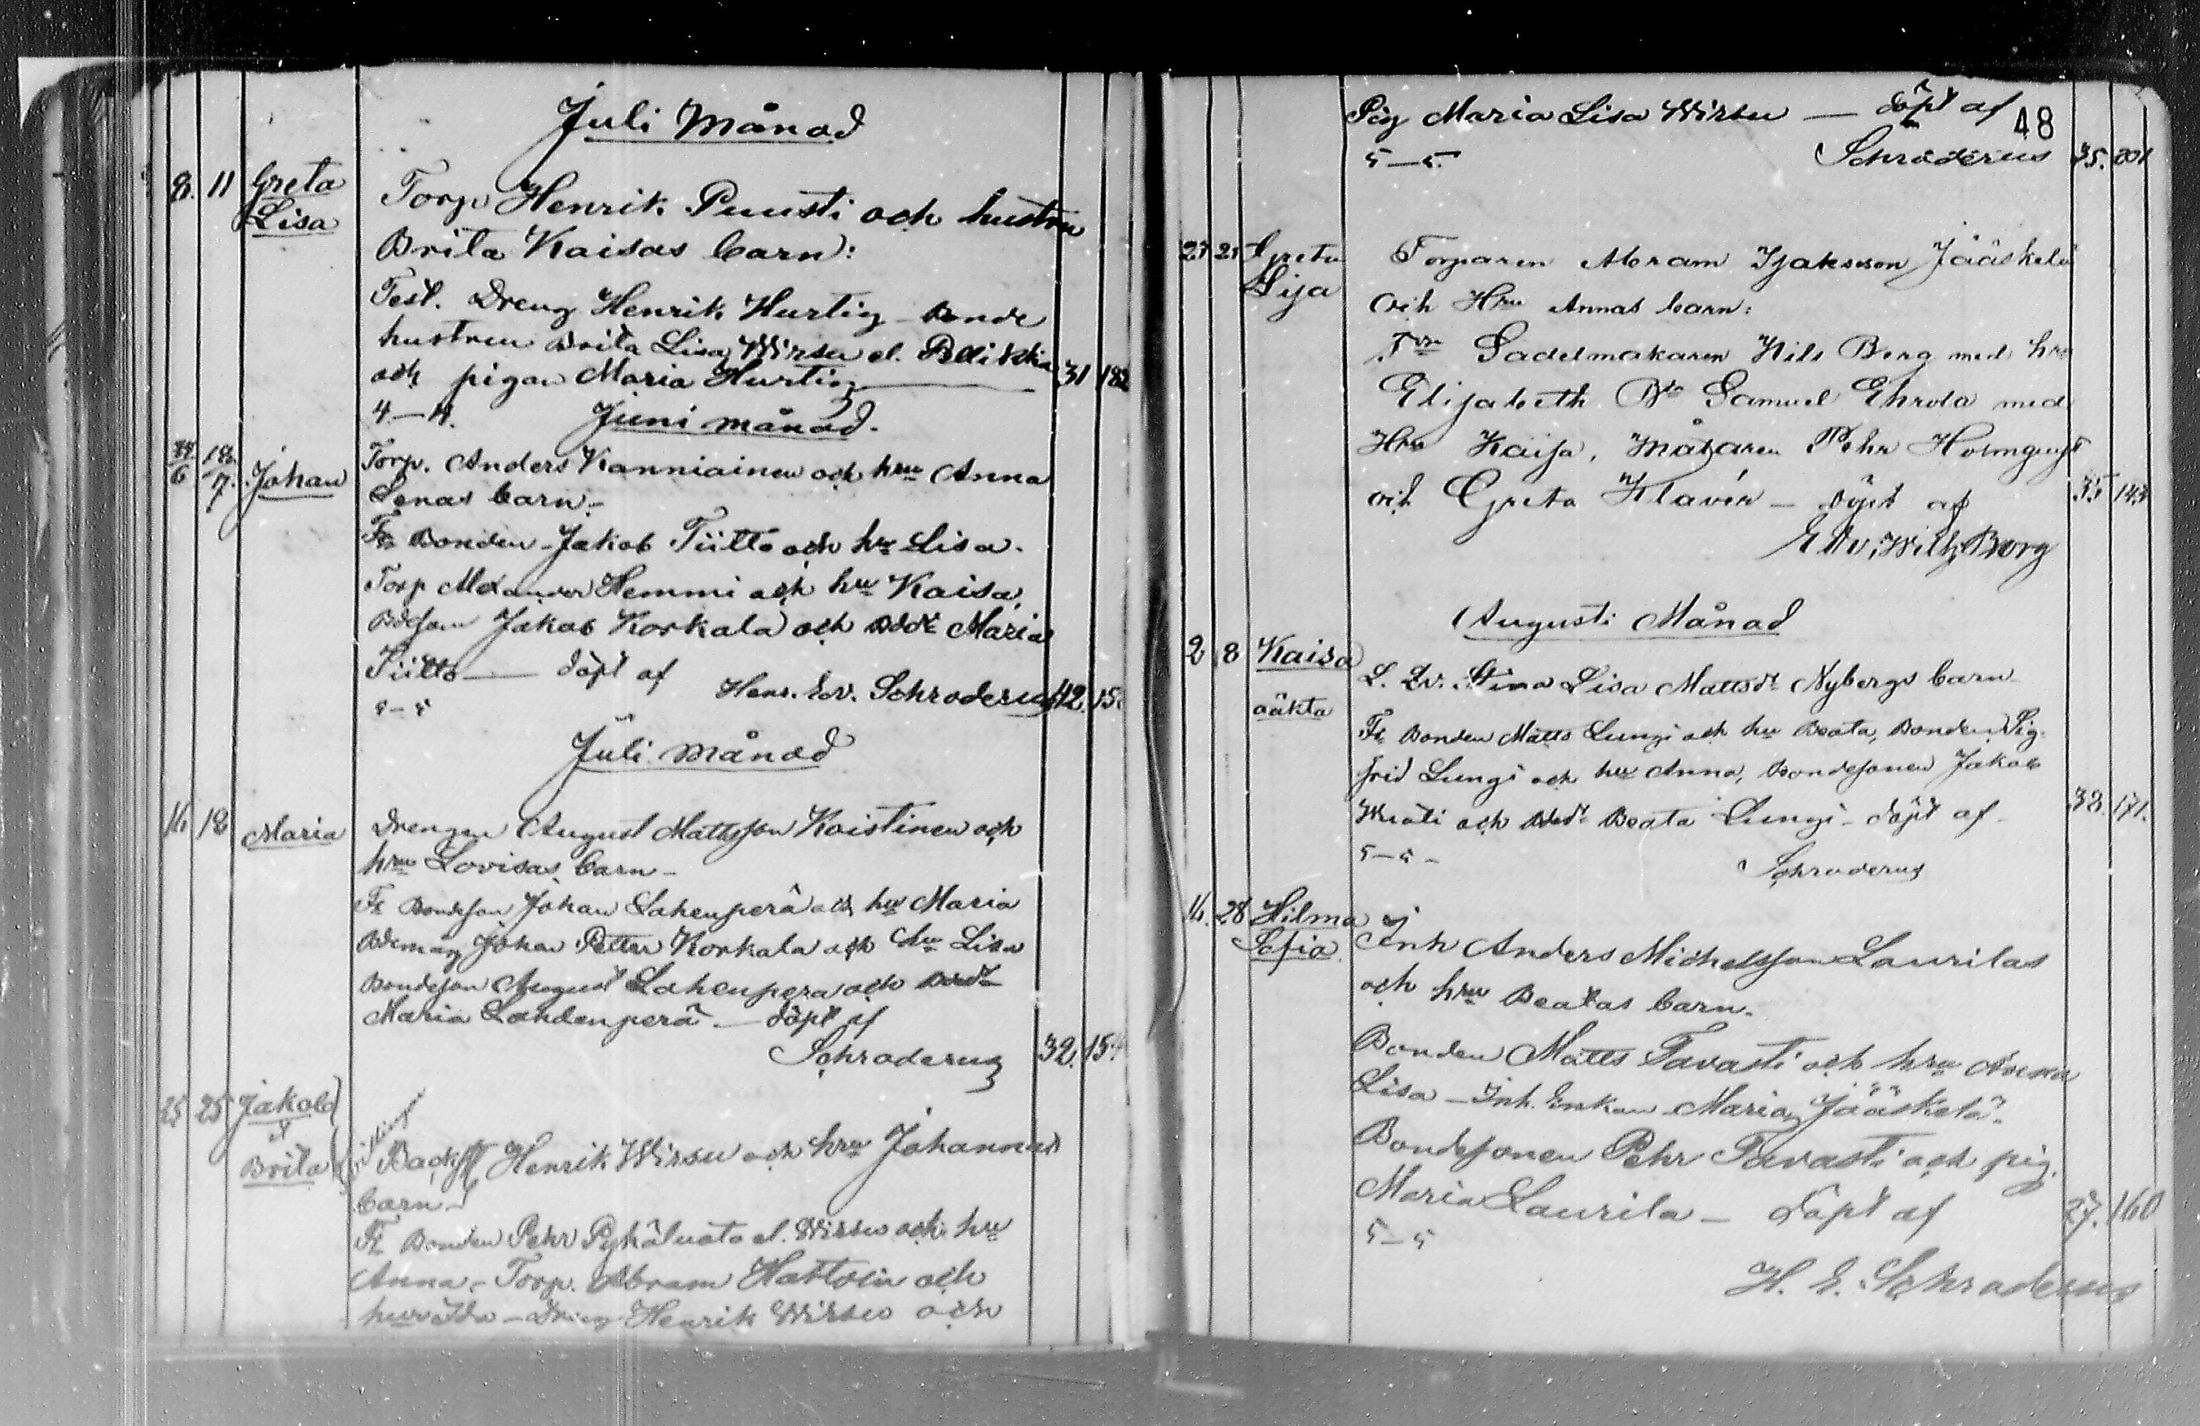 Juli Månad
8. 11 Greta Torp Henrik Puusti och hustru
Lisa
Brita Kaisas barn:
Test. Dreng Henrik Hurtig - Bonde
hustrun Brita Lisa Wirsu el.
och pigan Maria Hurtig 31 182
4-4.
Juni månad.
6 7. Johan Torp. Anders Kanniainen och hru Anna
Lenas barn -
Fr Bonden Jakob Tiitto och hru Lisa.
Torp Alexander Hemmi och hru Kaisa,
Bdeson Jakob Korkala och Bdedr Maria
Tiitto — döpt af Henr. Edv. Schroderus 42. 15
5-5
Juli månad
16 18 Maria Drengen August Mattsson Koistinen och
hru Lovisas barn -
Fr Bondeson Johan Lahenperä och hru Maria
Bdemåg Johan Petter Korkala och hru Lisa
Bondeson August Lahenpera och Bdedr
Maria Lahdenperä — döpt af
Schroderus 32. 154
25 25 Jakob
&
Brita
tvillingar
Backst Henrik Wirsu och hru Johannas
barn -
Fr Bonden Pehr Pyhäluoto el. Wirsu och hru
Anna - Torp. Abram Hattoin och
hru Ida - Dreng Henrik Wirsu och
48
Pig Maria Lisa Wirsu — döpt af
5-5. Schroderus 35. 201
27 27 Greta Torparen Abram Isaksson Jääskelä
Lisa
och Hru Annas barn:
Fr Sadelmakaren Nils Berg med hru
Elisabeth Bd Samuel Ehrola med
Hru Kaisa, Målaren Pehr Holmqvist
och Greta Klavér - döpt af 35 143
Edv. Wilh Borg
Augusti Månad
2 8 Kaisa L. Qv. Stina Lisa Mattsdr Nybergs barn
oäkta
Fr Bonden Matts Lungi och hru Beata, Bonden Sig-
frid Lungi och hru Anna, Bondesonen Jakob
och Bdedr Beata Lungi - döpt af 38. 171.
5-5-
Schroderus
16. 28 Hilma
Sofia
Inh Anders Michelsson Laurilas
och hru Beatas barn.
Bonden Matts Tavasti och hru Anna
Lisa - Inh. Enkan Maria Jääskelä.
Bondesonen Pehr Tavasti och pig.
Maria Laurila — döpt af 27. 160
5-5
H. E. Schroderus